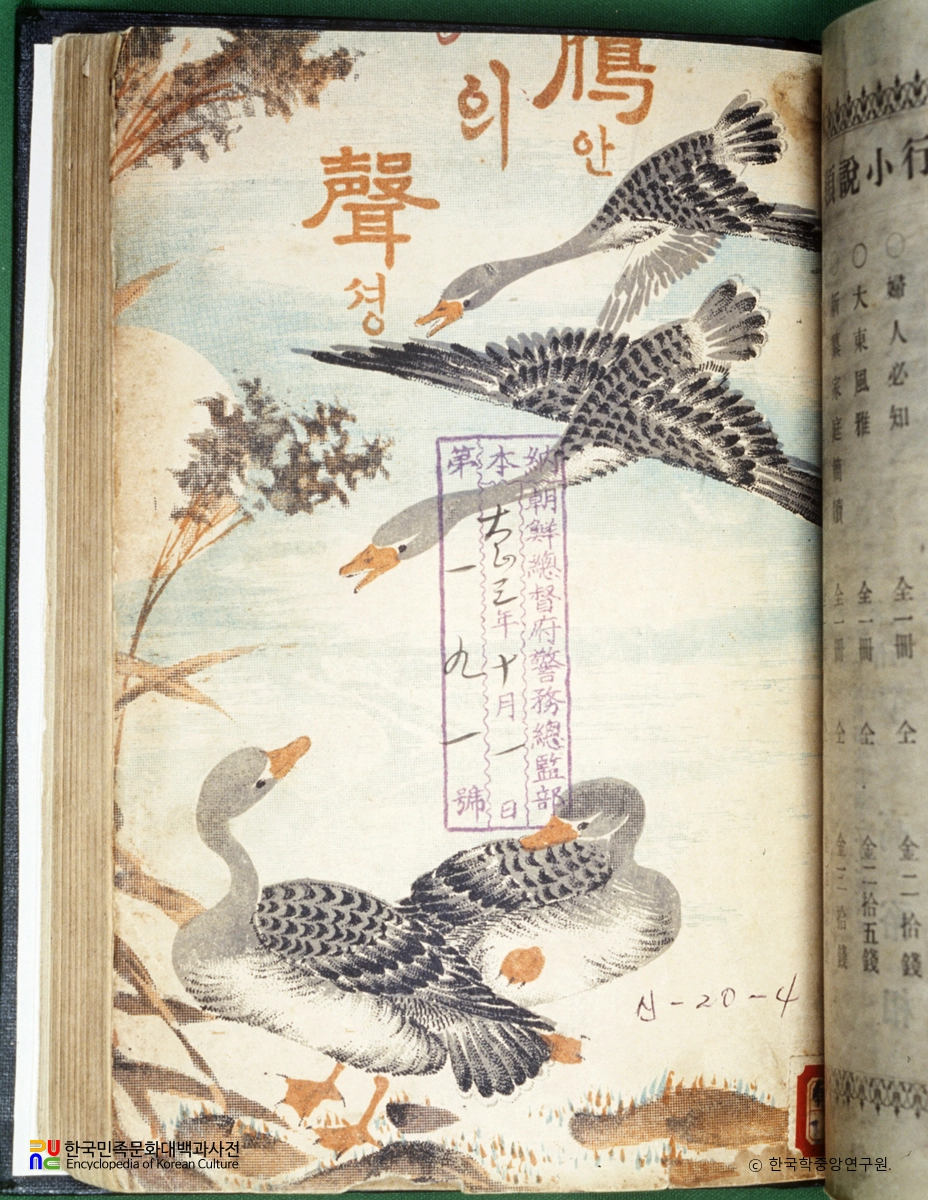 鴈
안
의
聲
셩
納本
朝鮮總督府警務總監部
大正三年十月一日
第一九一號
신-20-4
行
小
說
○婦人必知 全一冊 仝 金二拾錢
○大東風雅 全一冊 仝 金二拾五錢
家庭簡牘 全一冊 仝 金二拾錢
한국민족문화대백과사전
Encyclopedia of Korean Culture
ⓒ 한국학중앙연구원.